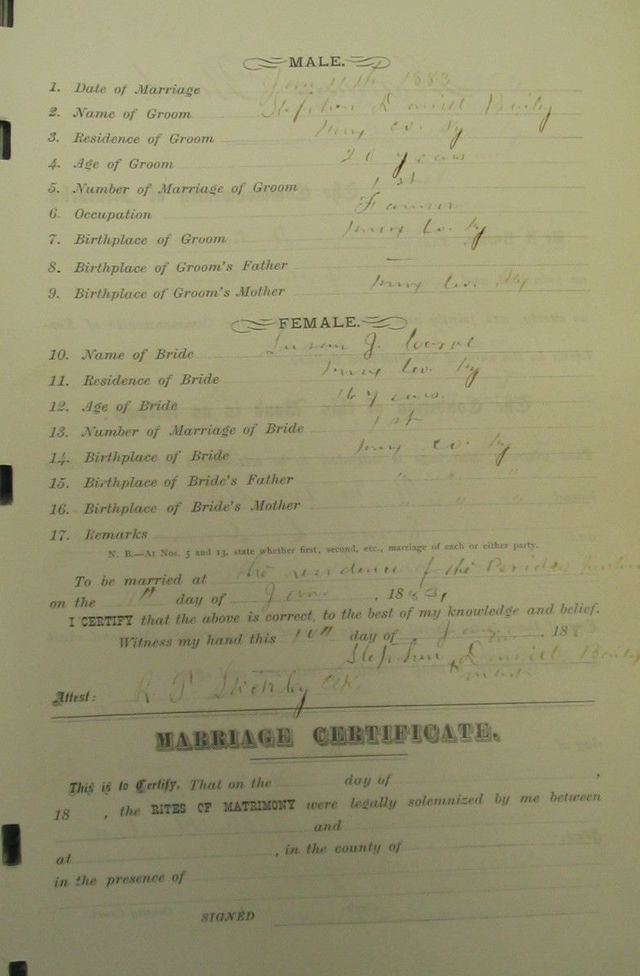 MALE.
1. Date of Marriage 1883
2. Name of Groom Stephen Daniell Baily
3. Residence of Groom co. Ky
4. Age of Groom 20 years
5. Number of Marriage of Groom 1st
6. Occupation Farmer
7. Birthplace of Groom Co. Ky
8. Birthplace of Groom's Father —
9. Birthplace of Groom's Mother Co. Ky
FEMALE.
10. Name of Bride Susan J.
11. Residence of Bride Co. Ky
12. Age of Bride 16 years.
13. Number of Marriage of Bride 1st
14. Birthplace of Bride co Ky
15. Birthplace of Bride's Father " " "
16. Birthplace of Bride's Mother " " "
17. Remarks
N. B.—At Nos. 5 and 13, state whether first, second, etc., marriage of each or either party.
To be married at the residence of the
on the day of Jan. , 1883,
I CERTIFY that the above is correct, to the best of my knowledge and belief.
Witness my hand this 10th day of Jany. , 1883
Stephen Daniell Baily
x mark
Attest: R P
MARRIAGE CERTIFICATE.
This is to Certify, That on the day of ,
18 , the RITES OF MATRIMONY were legally solemnized by me between
and
at , in the county of
in the presence of
SIGNED